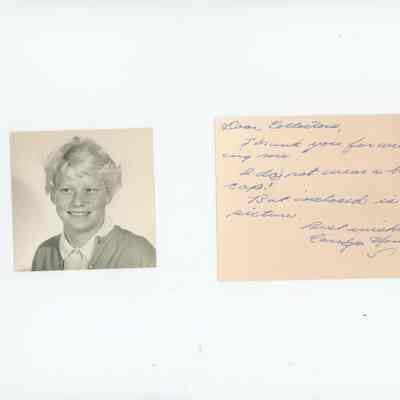 Dear Collectors,
Thank you for wri
ing me.
I do not wear a b
cap!
But enclosed is
picture.
Best wish
Carolyn